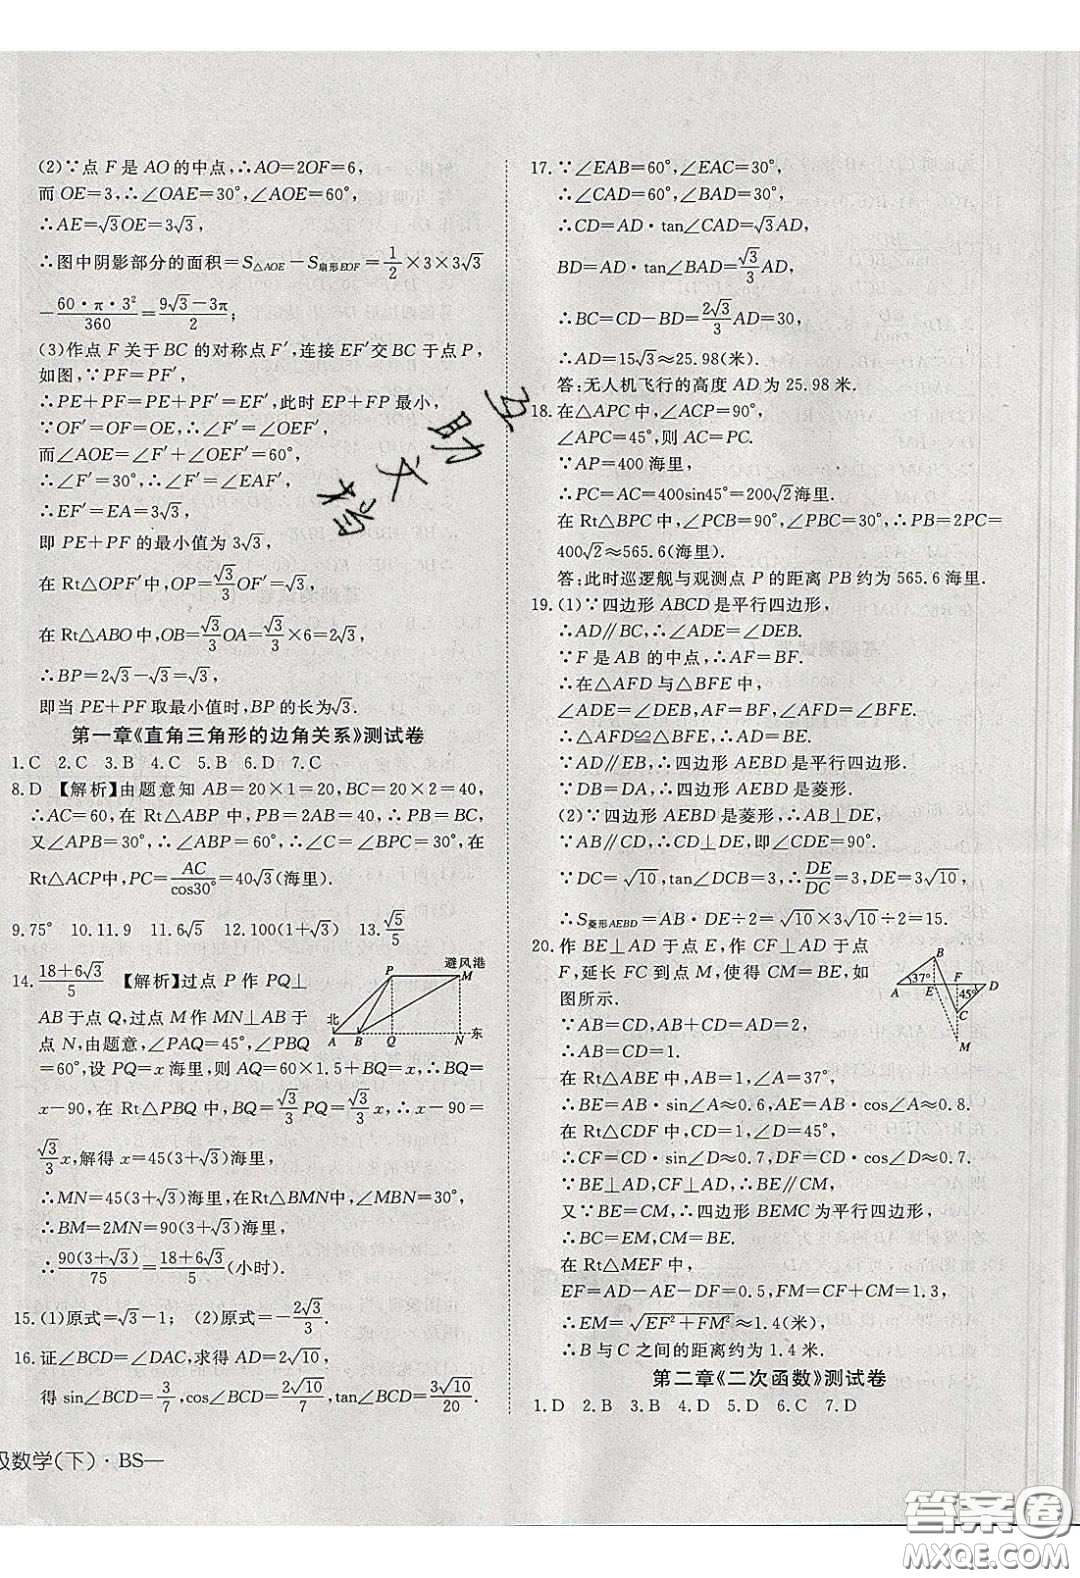 (2)∵点 F 是 AO 的中点,∴AO=2OF=6,
而 OE=3,∴∠OAE=30°,∠AOE=60°,
∴AE=√3OE=3√3,
∴图中阴影部分的面积=S△AOE－S扇形EOF=1/2×3×3√3
-60·π·3²/360=(9√3-3π)/2;
(3)作点 F 关于 BC 的对称点 F′,连接 EF′交 BC 于点 P,
如图,∵PF=PF′,
∴PE+PF=PE+PF′=EF′,此时 EP+FP 最小,
∵OF′=OF=OE,∴∠F′=∠OEF′,
而∠AOE=∠F′+∠OEF′=60°,
∴∠F′=30°,∴∠F′=∠EAF′,
∴EF′=EA=3√3,
即 PE+PF 的最小值为 3√3,
在 Rt△OPF′中,OP=√3/3 OF′=√3,
在 Rt△ABO 中,OB=√3/3 OA=√3/3×6=2√3,
∴BP=2√3-√3=√3,
即当 PE+PF 取最小值时,BP 的长为√3.
第一章《直角三角形的边角关系》测试卷
1.C 2.C 3.B 4.C 5.B 6.D 7.C
8.D 【解析】由题意知 AB=20×1=20,BC=20×2=40,
∴AC=60,在 Rt△ABP 中,PB=2AB=40,∴PB=BC,
又∠APB=30°,∴∠ABP=60°,∴∠C=∠BPC=30°,在
Rt△ACP中,PC=AC/cos30°=40√3(海里).
9.75° 10.11.9 11.6√5 12.100(1+√3) 13.√5/5
14.(18+6√3)/5 【解析】过点 P 作 PQ⊥
AB 于点 Q,过点 M 作 MN⊥AB 于
点 N,由题意,∠PAQ=45°,∠PBQ
=60°,设 PQ=x 海里,则 AQ=60×1.5+BQ,∴BQ=
x-90,在 Rt△PBQ 中,BQ=√3/3 PQ=√3/3 x,∴x-90=
√3/3 x,解得 x=45(3+√3)海里,
∴MN=45(3+√3)海里,在Rt△BMN中,∠MBN=30°,
∴BM=2MN=90(3+√3)海里,
∴90(3+√3)/75=(18+6√3)/5(小时).
避风港
P M
北 东
A B Q N
15.(1)原式=√3-1; (2)原式=-2√3/3.
16.证∠BCD=∠DAC,求得 AD=2√10,
得 sin∠BCD=3/7,cos∠BCD=2√10/7,tan∠BCD=3√10/20.
级数学(下)·BS—
17.∵∠EAB=60°,∠EAC=30°,
∴∠CAD=60°,∠BAD=30°,
∴CD=AD·tan∠CAD=√3AD,
BD=AD·tan∠BAD=√3/3 AD,
∴BC=CD-BD=2√3/3 AD=30,
∴AD=15√3≈25.98(米).
答:无人机飞行的高度 AD 为 25.98 米.
18.在△APC 中,∠ACP=90°,
∠APC=45°,则 AC=PC.
∵AP=400 海里,
∴PC=AC=400sin45°=200√2海里.
在 Rt△BPC 中,∠PCB=90°,∠B=30°,∴PB=2PC=
400√2≈565.6(海里).
答:此时巡逻舰与观测点 P 的距离 PB 约为 565.6 海里.
19.(1)∵四边形 ABCD 是平行四边形,
∴AD∥BC,∴∠ADE=∠DEB.
∵F 是 AB 的中点,∴AF=BF.
∴在△AFD 与△BFE 中,
∠ADE=∠DEB,∠AFD=∠BFE,AF=BF,
∴△AFD≌△BFE,∴AD=BE.
∵AD∥EB,∴四边形 AEBD 是平行四边形.
∵DB=DA,∴四边形 AEBD 是菱形.
(2)∵四边形 AEBD 是菱形,∴AB⊥DE,
∵AB∥CD,∴CD⊥DE,即∠CDE=90°.
∵DC=√10,tan∠DCB=3,∴DE/DC=3,DE=3√10,
∴S菱形AEBD=AB·DE÷2=√10×3√10÷2=15.
20.作 BE⊥AD 于点 E,作 CF⊥AD 于点
F,延长 FC到点 M,使得 CM=BE,如
图所示.
∵AB+CD=AD=2,
∴AB=CD=1.
在 Rt△ABE 中,AB=1,∠A=37°,
∴BE=AB·sin∠A≈0.6,AE=AB·cos∠A≈0.8.
在 Rt△CDF 中,CD=1,∠D=45°,
∴CF=CD·sin∠D≈0.7,DF=CD·cos∠D≈0.7.
∵BE⊥AD,CF⊥AD,∴BE∥CM,
又∵BE=CM,∴四边形 BEMC 为平行四边形,
∴BC=EM,CM=BE.
在 Rt△MEF 中,
EF=AD-AE-DF=0.5,FM=CF+CM=1.3,
∴EM=√(EF²+FM²)≈1.4(米),
∴B 与 C 之间的距离约为 1.4 米.
B
A 37° E F D
45°
C
M
第二章《二次函数》测试卷
1.D 2.B 3.B 4.D 5.D 6.C 7.D
答案卷
MXQE.COM